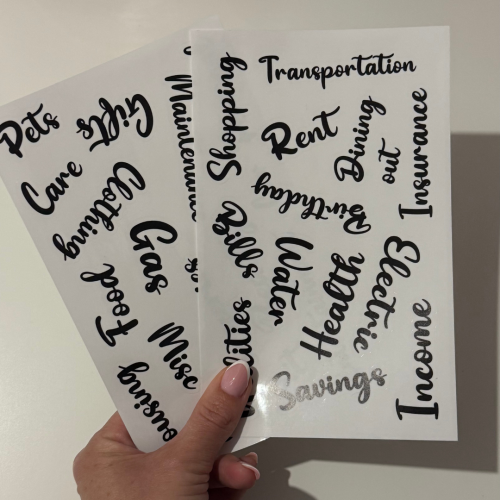 Pets
Gifts
Care
Clothing
Gas
Food
Misc
Shopping
Transportation
Rent
Dining
out
Insurance
Birthday
Bills
Water
Health
Electric
Savings
Income